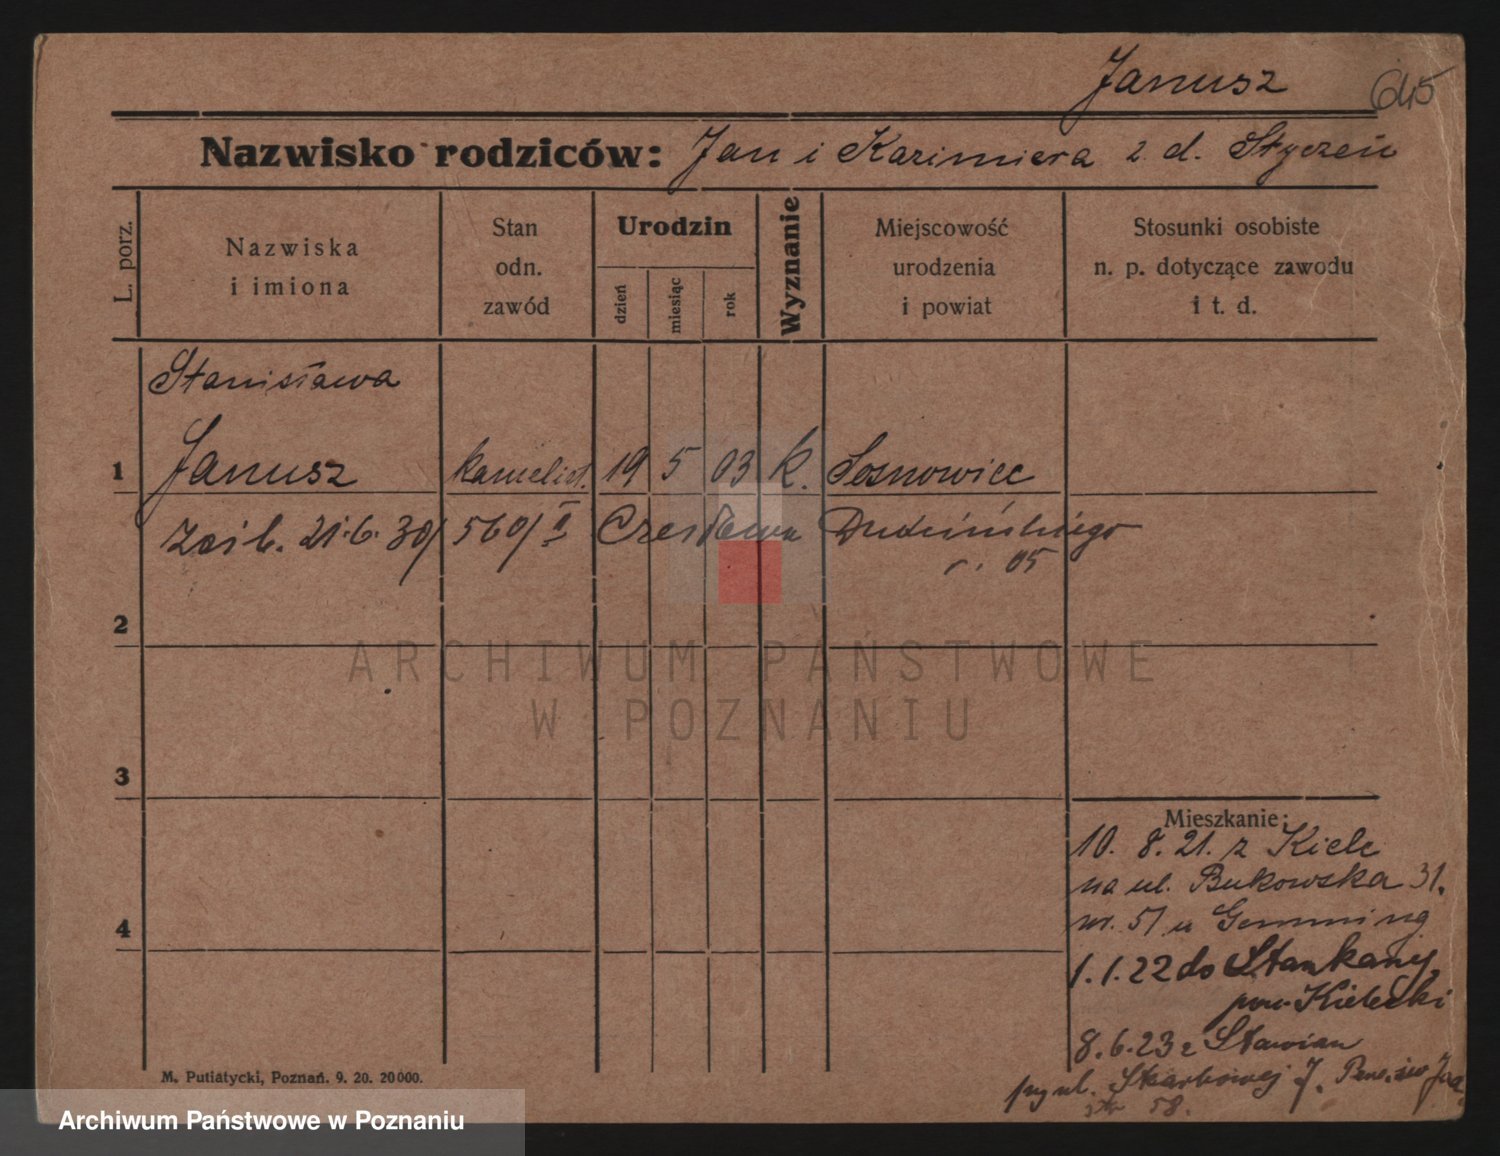 Janusz 645
Nazwisko rodziców: Jan i Kazimiera z d. Styczeń
L. porz.
Nazwiska
i imiona
Stan
odn.
zawód
Urodzin
dzień
miesiąc
rok
Wyznanie
Miejscowość
urodzenia
i powiat
Stosunki osobiste
n. p. dotyczące zawodu
i t. d.
Stanisława
1 Janusz kancelist. 19 5 03 k. Sosnowiec
21.6.30/560/II Czesława Dudzińskiego
r. 05
2
3
4
ARCHIWUM PAŃSTWOWE
W POZNANIU
Mieszkanie:
10. 8. 21. z Kielc
na ul. Bukowska 31.
m. 5/ u Gemming
1.1.22 do
pow. Kielecki
8.6.23 z
przy ul. Skarbowej
58.
M. Putiatycki, Poznań. 9. 20. 20000.
Archiwum Państwowe w Poznaniu